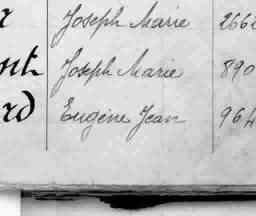 r Joseph Marie 266
nt Joseph Marie 890
rd Eugène Jean 964